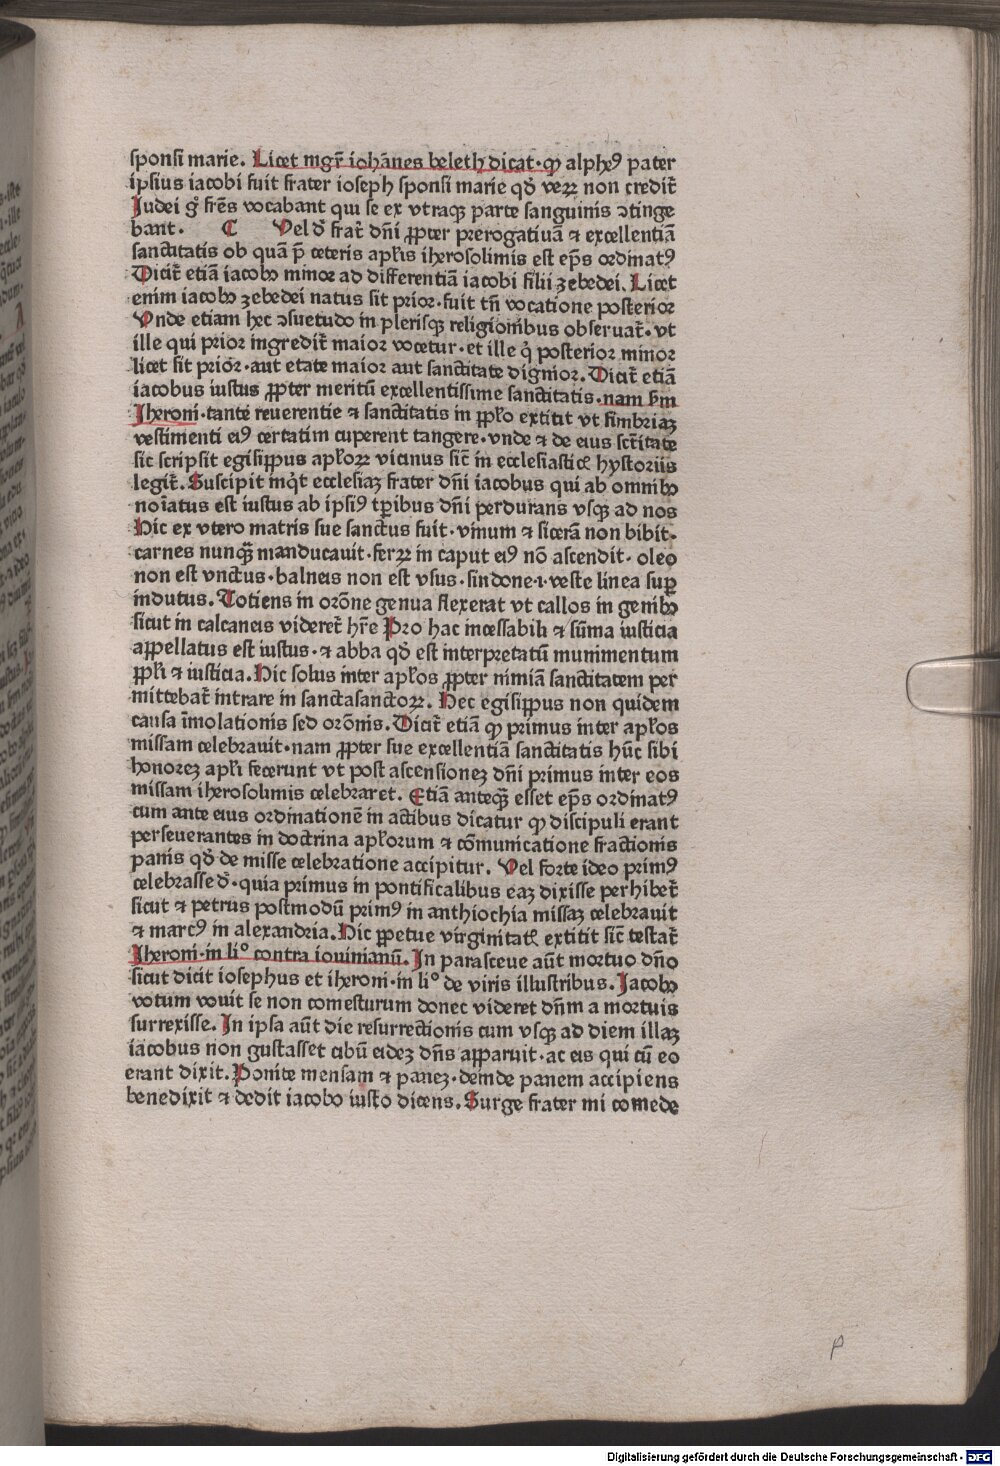 sponsi marie. Licet mgr̄ iohānes beleth dicat· qꝫ alpheꝰ pater
ipsius iacobi fuit frater ioseph sponsi marie qd̓ veꝝ non credit̄
Judei g̊ fres̄ vocabant qui se ex vtraqꝫ parte sanguinis ↄtinge
bant. C Vel d̓ frat̄ dn̄i ꝓpter prerogatiuā ⁊ excellentiā
sanctitatis ob quā p̄ ceteris apl̓is iherosolimis est ep̄s ordinatꝰ
Dicit̄ etiā iacobo minor ad differentiā iacobi filii zebedei. Licet
enim iacobo zebedei natus sit prior· fuit tn̄ vocatione posterior
Vnde etiam hec ↄsuetudo in plerisqꝫ religionibus obseruat̄· vt
ille qui prior ingredit̄ maior vocetur· et ille q̇ posterior minor
licet sit prior· aut etate maior aut sanctitate dignior. Dicit̄ etiā
iacobus iustus ꝓpter meritū excellentissime sanctitatis· nam ẜm
Jheroni· tante reuerentie ⁊ sanctitatis in ppl̓o extitit vt fimbriaꝫ
vestimenti eiꝰ certatim cuperent tangere· vnde ⁊ de eius sct̄itate
sic scripsit egisippus apl̓oꝝ vicinus sic̄ in ecclesiastic̄ hystoriis
legit̄. Suscipit inq̇t ecclesiaꝫ frater dn̄i iacobus qui ab omnibo
noīatus est iustus ab ipsiꝰ tp̄ibus dn̄i perdurans vsqꝫ ad nos
Hic ex vtero matris sue sanctus fuit· vinum ⁊ sicerā non bibit·
carnes nunqꝫ̄ manducauit· ferꝝ in caput eiꝰ nō ascendit· oleo
non est vnctus· balneis non est vsus· sindone·i·veste linea sup̄
indutus. Totiens in orōne genua flexerat vt callos in genibo
sicut in calcaneis videret̄ hr̄e Pro hac incessabili ⁊ sūma iusticia
appellatus est iustus· ⁊ abba qd̓ est interpretatū munimentum
ppl̓i ⁊ iusticia. Hic solus inter apl̓os ꝓpter nimiā sanctitatem per
mittebat̄ intrare in sanctasanctoꝝ. Hec egisippus non quidem
causa īmolationis sed orōnis. Dicit̄ etiā qꝫ primus inter apl̓os
missam celebrauit· nam ꝓpter sue excellentiā sanctitatis hūc sibi
honoreꝫ apl̓i fecerunt vt post ascensioneꝫ dn̄i primus inter eos
missam iherosolimis celebraret. Etiā anteqꝫ̄ esset ep̄s ordinatꝰ
cum ante eius ordinationē in actibus dicatur qꝫ discipuli erant
perseuerantes in doctrina apl̓orum ⁊ cōmunicatione fractionis
panis qd̓ de misse celebratione accipitur. Vel forte ideo primꝰ
celebrasse d̓· quia primus in pontificalibus eaꝫ dixisse perhibet̄
sicut ⁊ petrus postmodū primꝰ in anthiochia missaꝫ celebrauit
⁊ marcꝰ in alexandria. Hic ꝑpetue virginitatꝭ extitit sic̄ testat̄
Jheroni· in li° contra iouinianū. In parasceue aūt mortuo dn̄o
sicut dicit iosephus et iheroni· in li° de viris illustribus. Jacobo
votum vouit se non comesturum donec videret dn̄m a mortuis
surrexisse. In ipsa aūt die resurrectionis cum vsqꝫ ad diem illaꝫ
iacobus non gustasset cibū eideꝫ dn̄s apparuit· ac eis qui cū eo
erant dixit. Ponite mensam ⁊ paneꝫ· deinde panem accipiens
benedixit ⁊ dedit iacobo iusto dicens. Surge frater mi comede
Digitalisierung gefördert durch die Deutsche Forschungsgemeinschaft - DFG